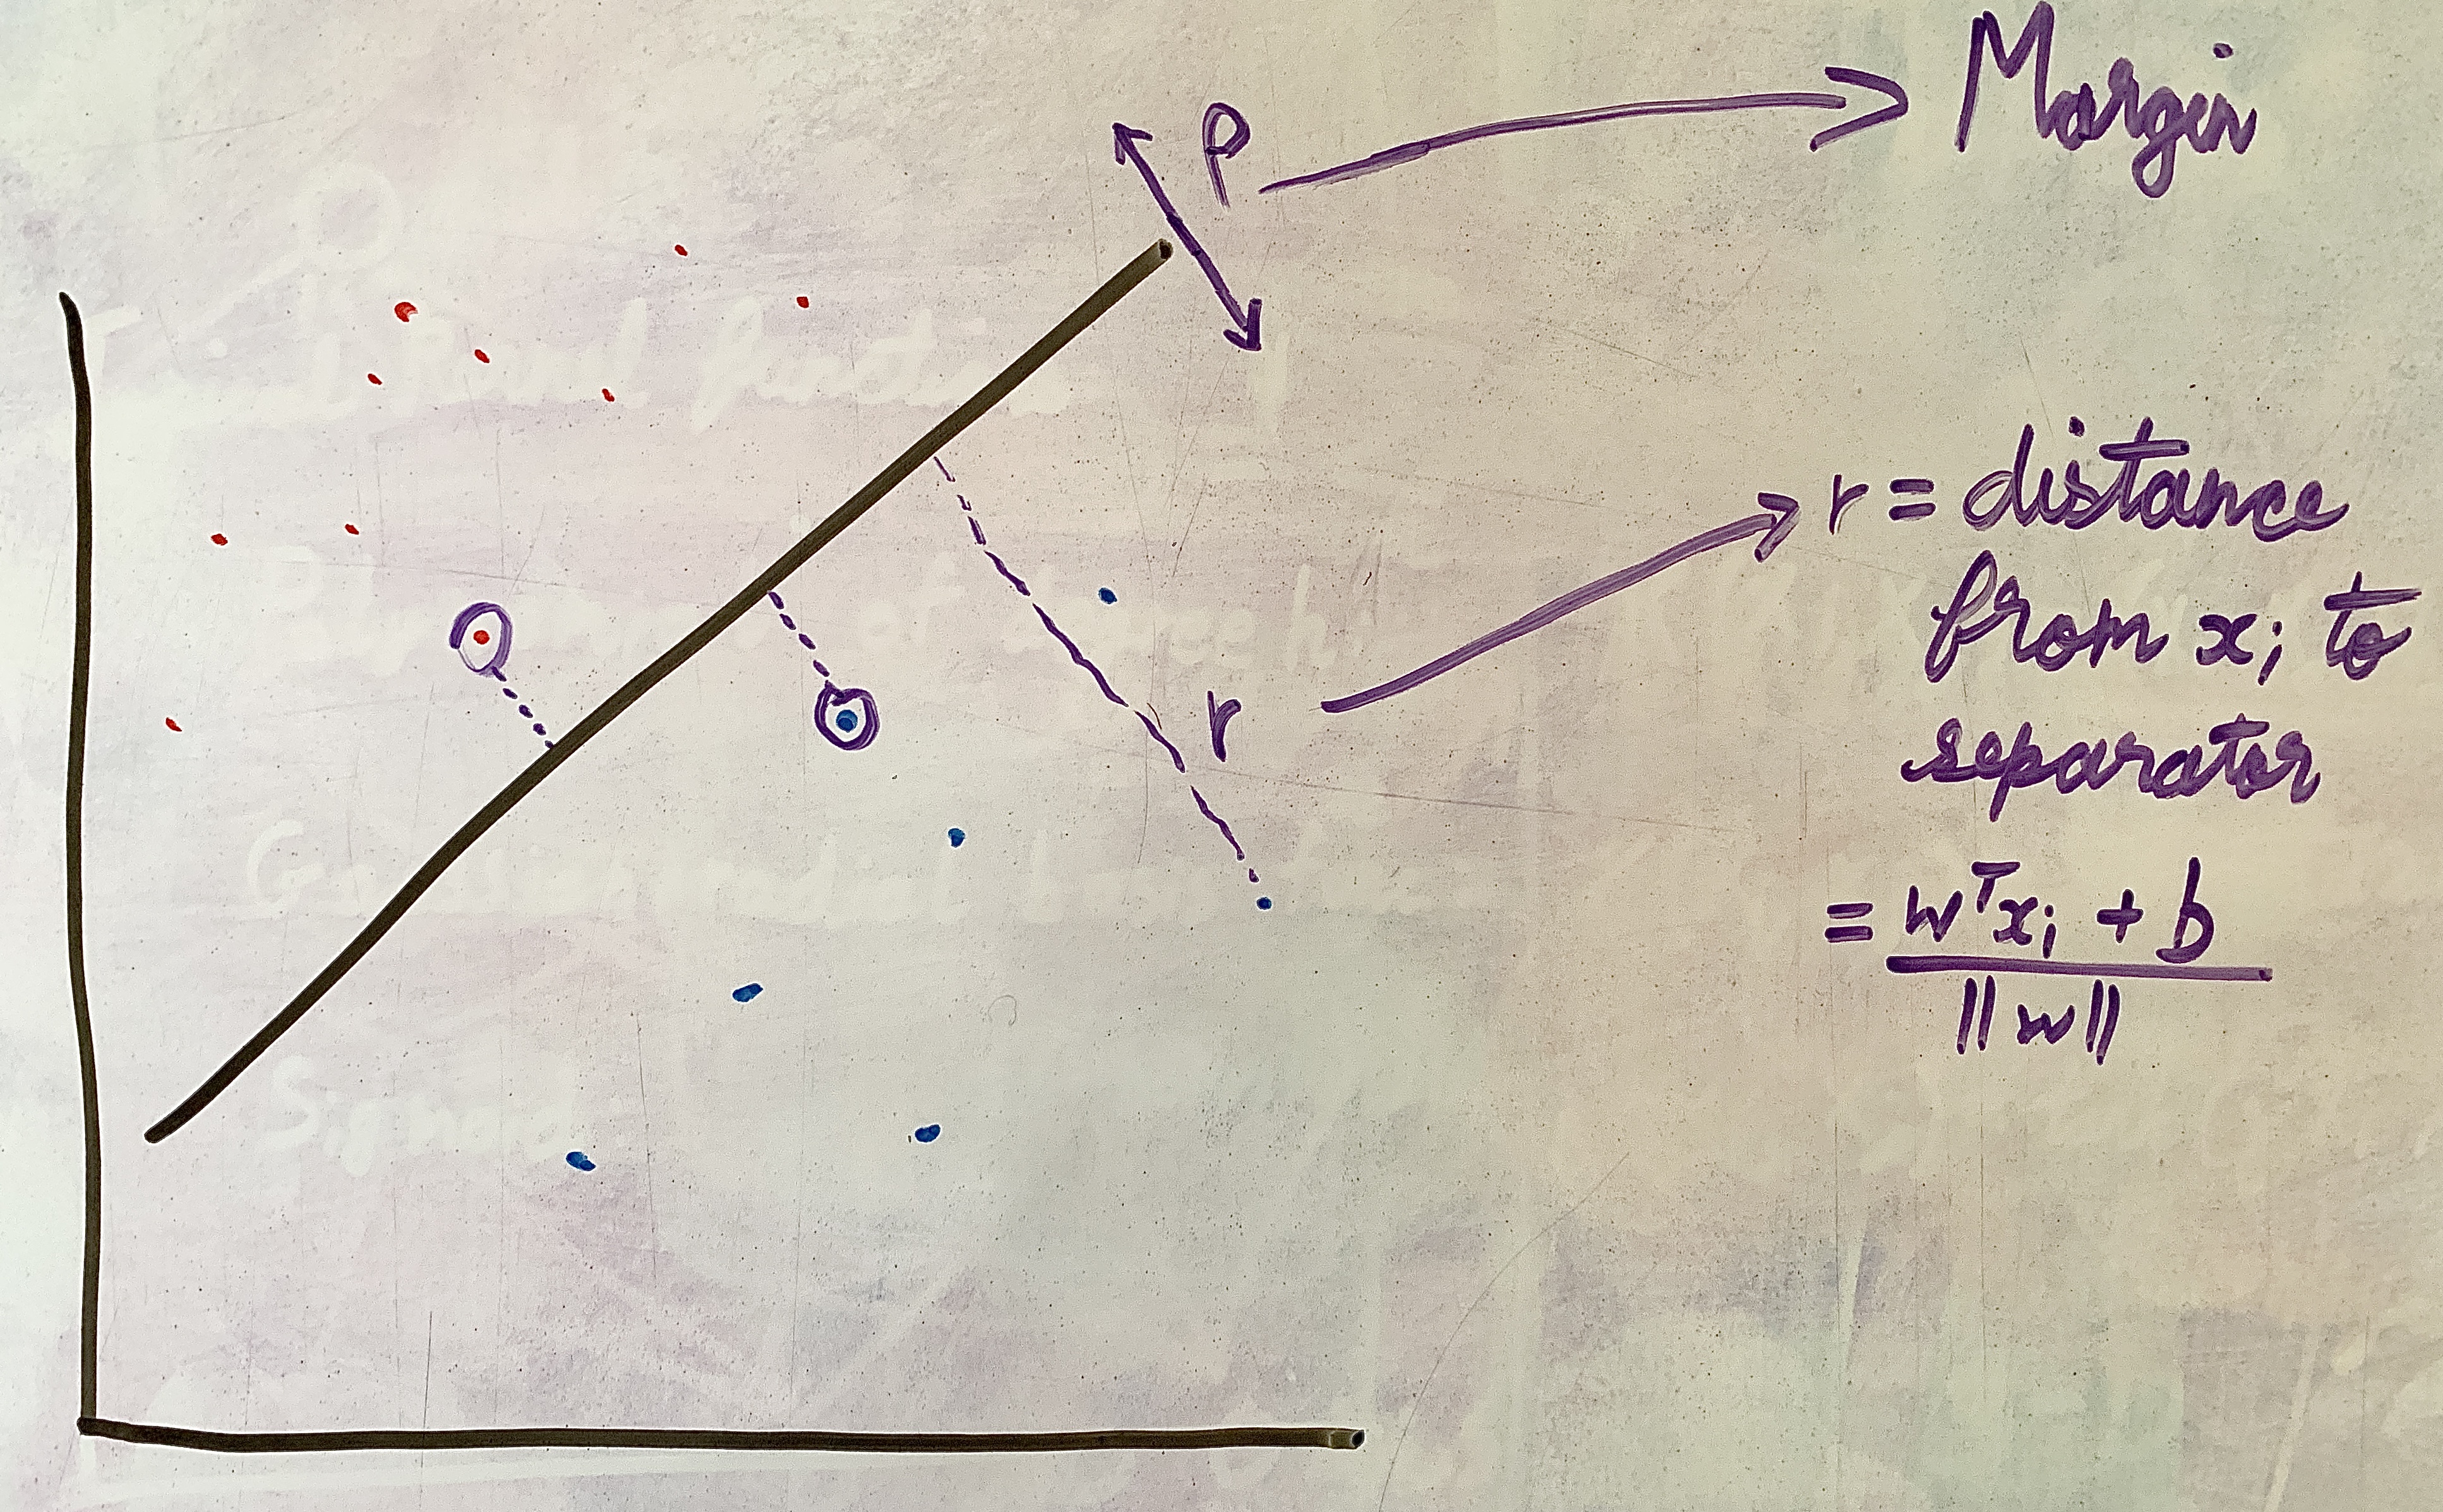 ρ
Margin
r
r = distance
from xᵢ to
separator
= wᵀxᵢ + b
‖w‖